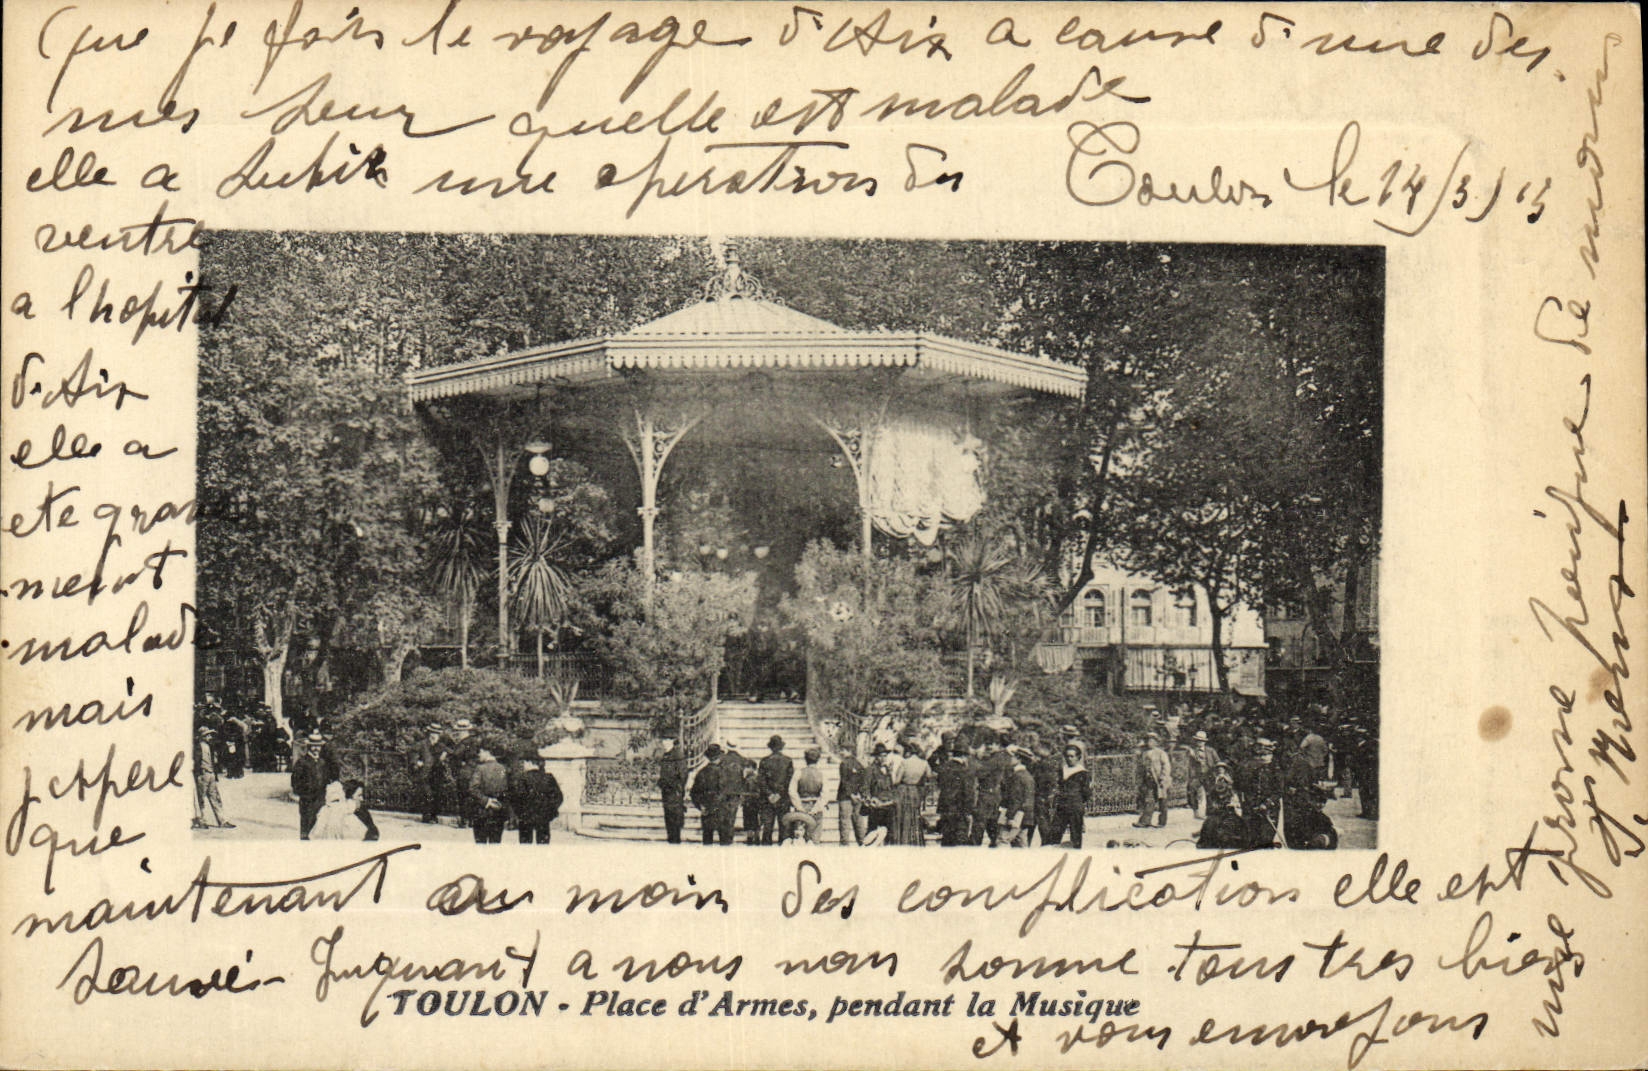 Que je fais le voyage d'Aix a cause d'une des
mes seur quelle est malade
elle a subit une operation du
Toulon le 14/3/13
ventre
a l'hopital
d'Aix
elle a
ete grave
ment
malade
mais
j'espere
que
maintenant au moin des complication elle est
sauvé - Juquant a nous nous somme tous tres bien
TOULON - Place d'Armes, pendant la Musique
et vous envoyons
une de mains